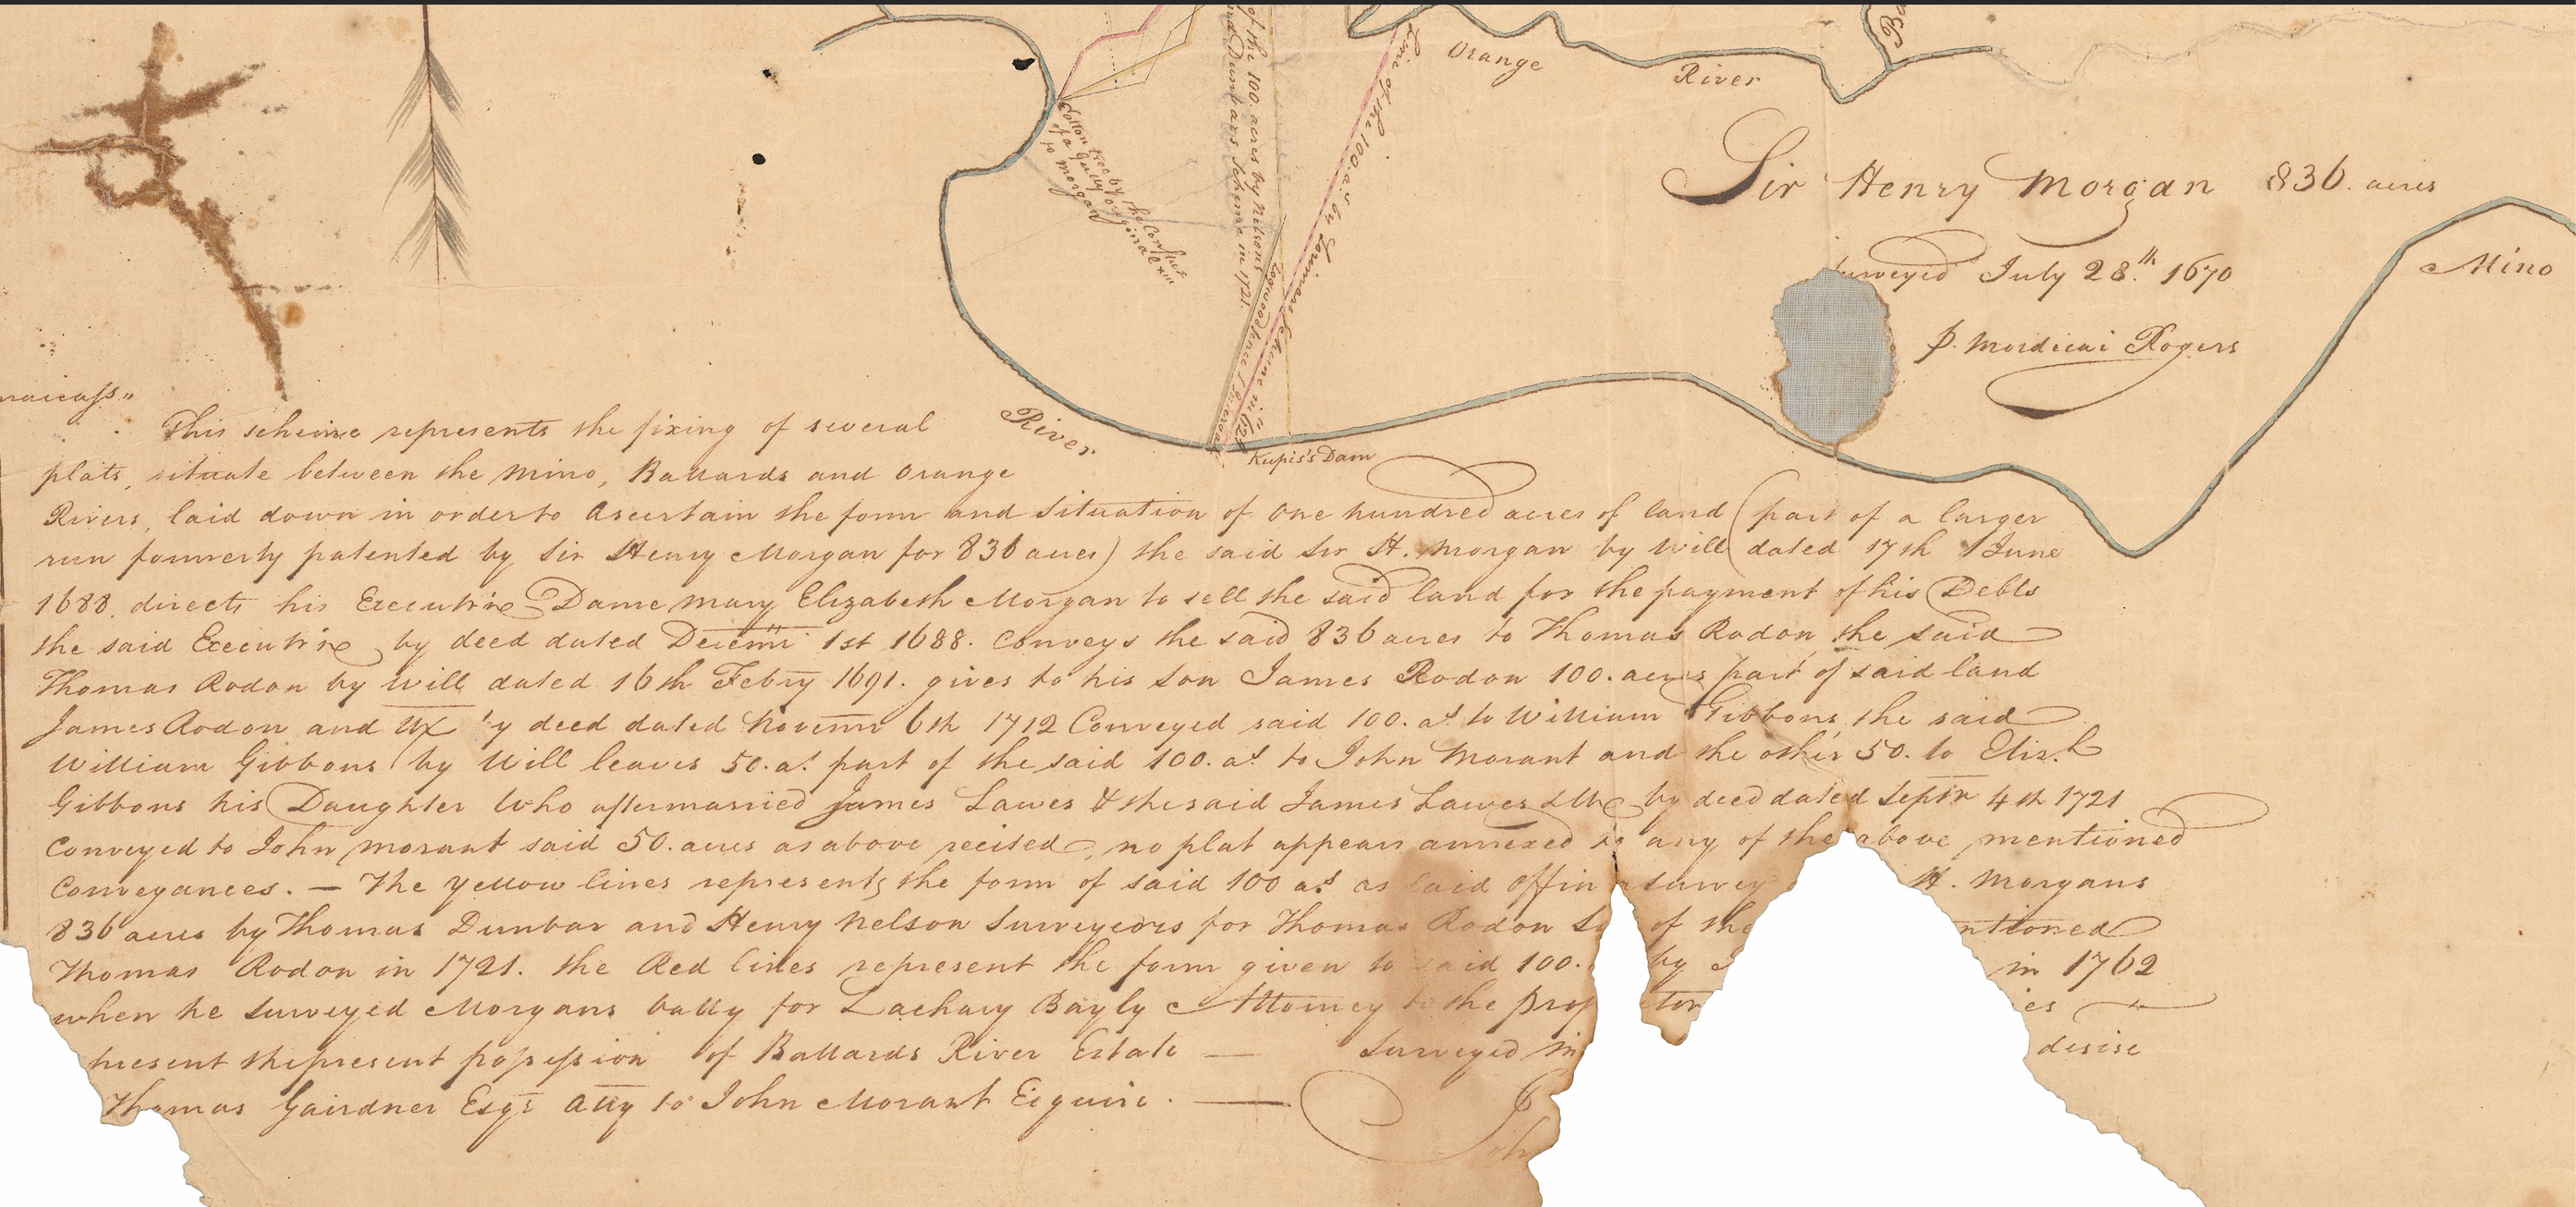 Orange
River
of the 100. acres by Nelsons
and Dunbars Scheme in 1721.
Line of the 100. as. by Scheme in
Logwood fence
Cotton tree by the Conflict
of a gully original xiii
to Morgan
Sir Henry Morgan 836. acres
Surveyed July 28.th 1670
P. Mordicai Rogers
Mino
River
Dam
This scheme represents the fixing of several
plats, situate between the Mino, Ballards and Orange
Rivers, laid down in order to Ascertain the form and Situation of One hundred acres of land (part of a larger
run formerly patented by Sir Henry Morgan for 836 acres) the said Sir H. Morgan by Will dated 17th June
1688. directs his Executrix Dame Mary Elizabeth Morgan to sell the said land for the payment of his Debts
the said Executrix by deed dated Decemr 1st 1688. Conveys the said 836 acres to Thomas Rodon, the said
Thomas Rodon by Will dated 16th Febry 1691. gives to his son James Rodon 100. acres part of said land
James Rodon and Ux by deed dated Novemr 6th 1712 Conveyed said 100. as. to William Gibbons, the said
William Gibbons by Will leaves 50. as. part of the said 100. as. to John Morant and the other 50. to Eliz.h
Gibbons his Daughter Who aftermarried James Lawes & the said James Lawes & Ux by deed dated Septr 4th 1721
Conveyed to John Morant said 50. acres as above recited, no plat appears annexed to any of the above mentioned
Conveyances. — The Yellow lines represents the form of said 100 as. as laid off in a survey H. Morgans
836 acres by Thomas Dunbar and Henry Nelson Surveyors for Thomas Rodon of the
Thomas Rodon in 1721. the Red lines represent the form given to said 100. by in 1762
when he surveyed Morgans vally for Zachary Bayly Attorney to the
present the present possession of Ballards River Estate — Surveyed in desire
Thomas Gairdner Esqr. Atty to John Morant Esquire. —
Joh